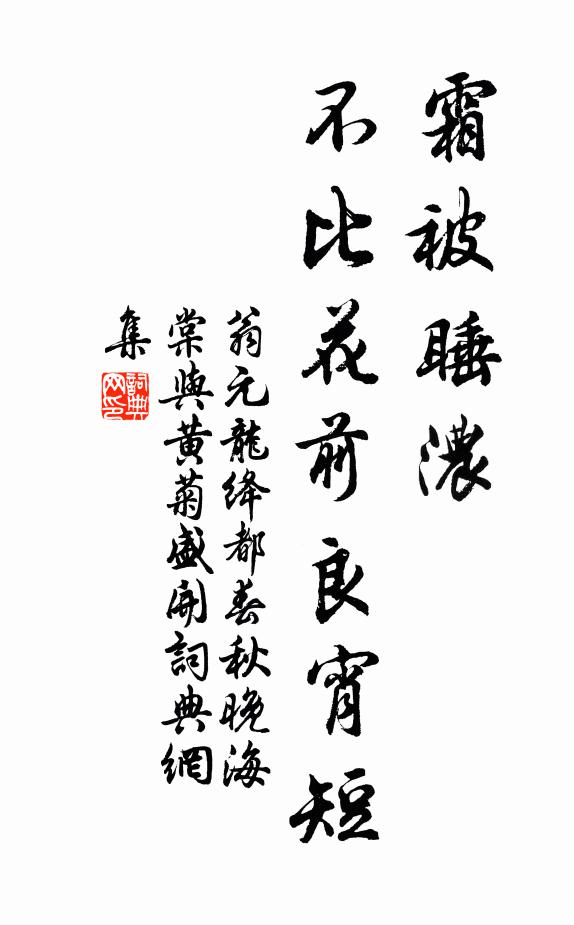 霜被睡濃
不比花前良宵短
翁元龍絳都春秋晚海
棠與黃菊盛開詞典網
集
詞典
网印